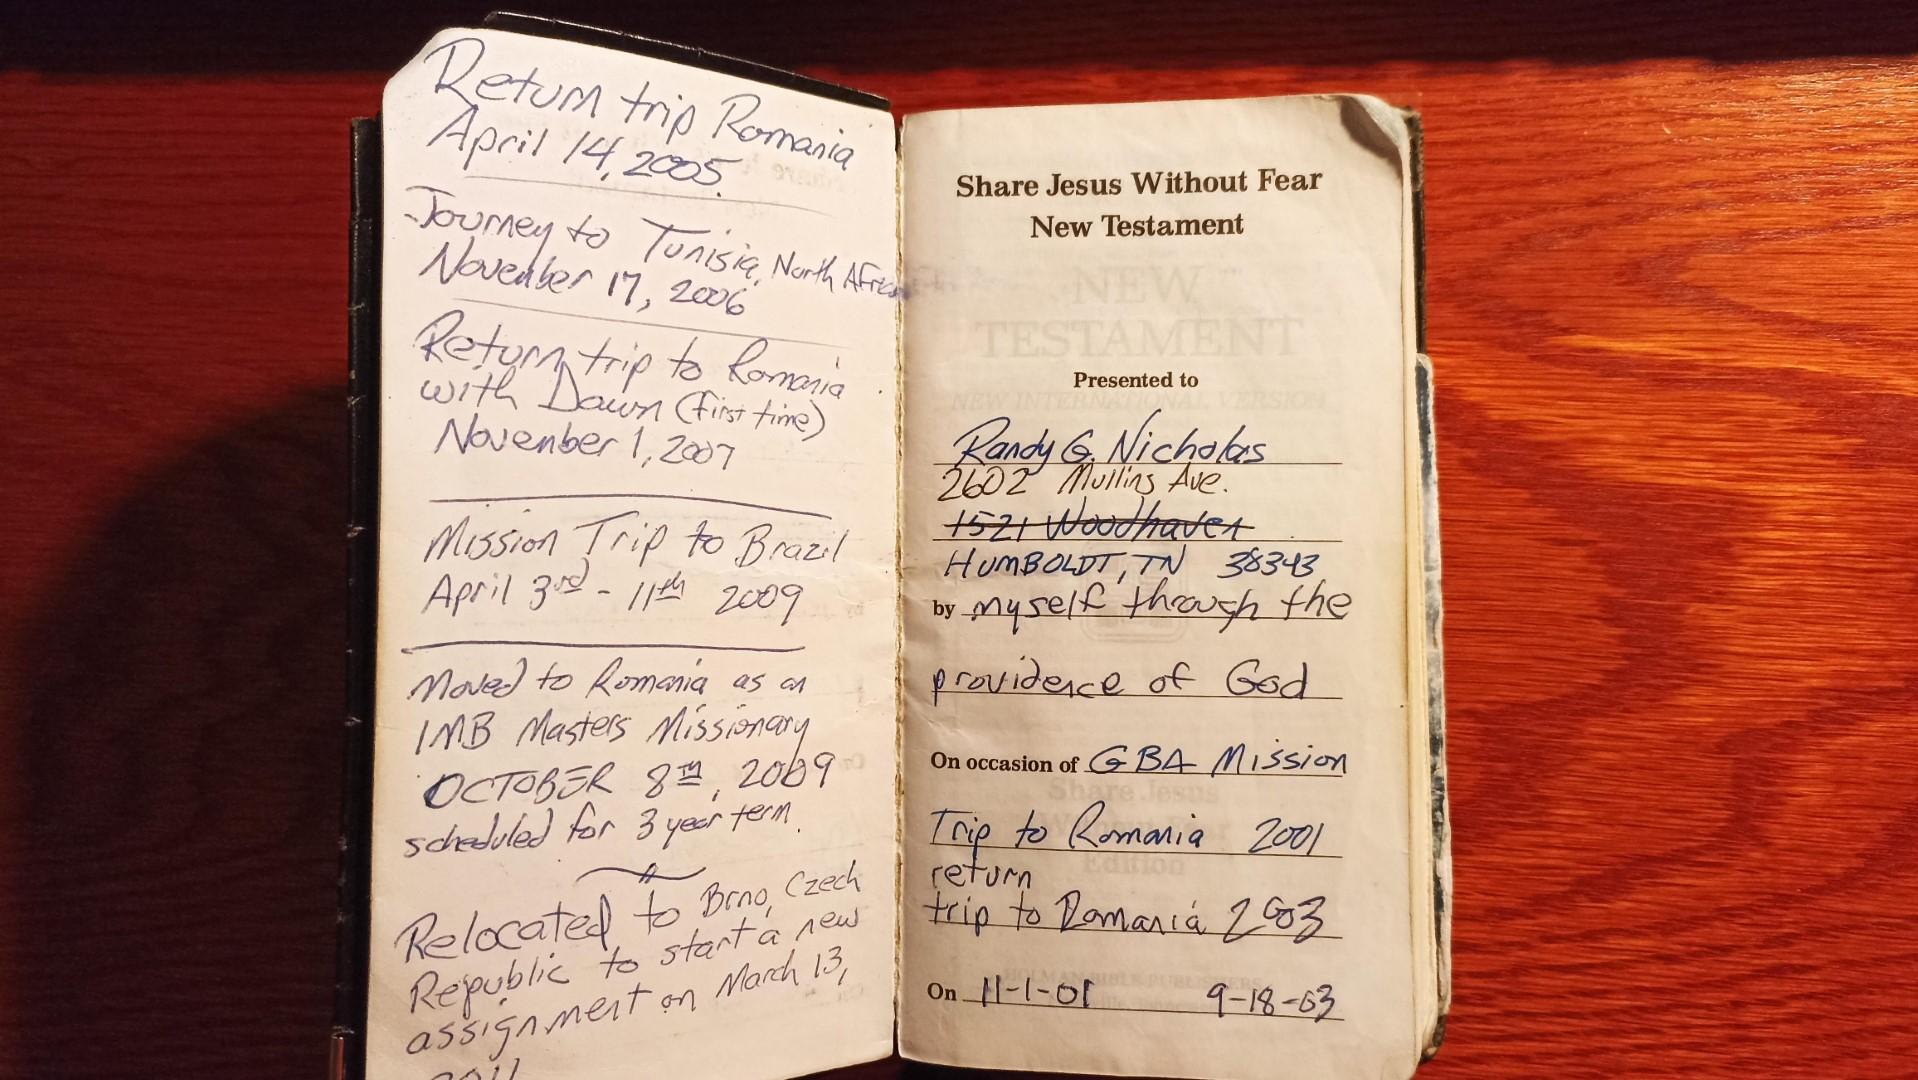 Return trip Romania
April 14, 2005.
Journey to Tunisia, North Africa
November 17, 2006
Return trip to Romania
with Dawn (first time)
November 1, 2007
Mission Trip to Brazil
April 3rd - 11th 2009
Moved to Romania as an
IMB Masters Missionary
OCTOBER 8TH, 2009
scheduled for 3 year term.
Relocated to Brno, Czech
Republic to start a new
assignment on March 13,
2011
Share Jesus Without Fear
New Testament
NEW
TESTAMENT
Presented to
NEW INTERNATIONAL VERSION
Randy G. Nicholas
2602 Mullins Ave.
1521 Woodhaven
HUMBOLDT, TN 38343
by myself through the
providence of God
On occasion of GBA Mission
Share Jesus
Trip to Romania 2001
Edition
return
trip to Romania 2003
HOLMAN BIBLE PUBLISHERS
On 11-1-01 9-18-03